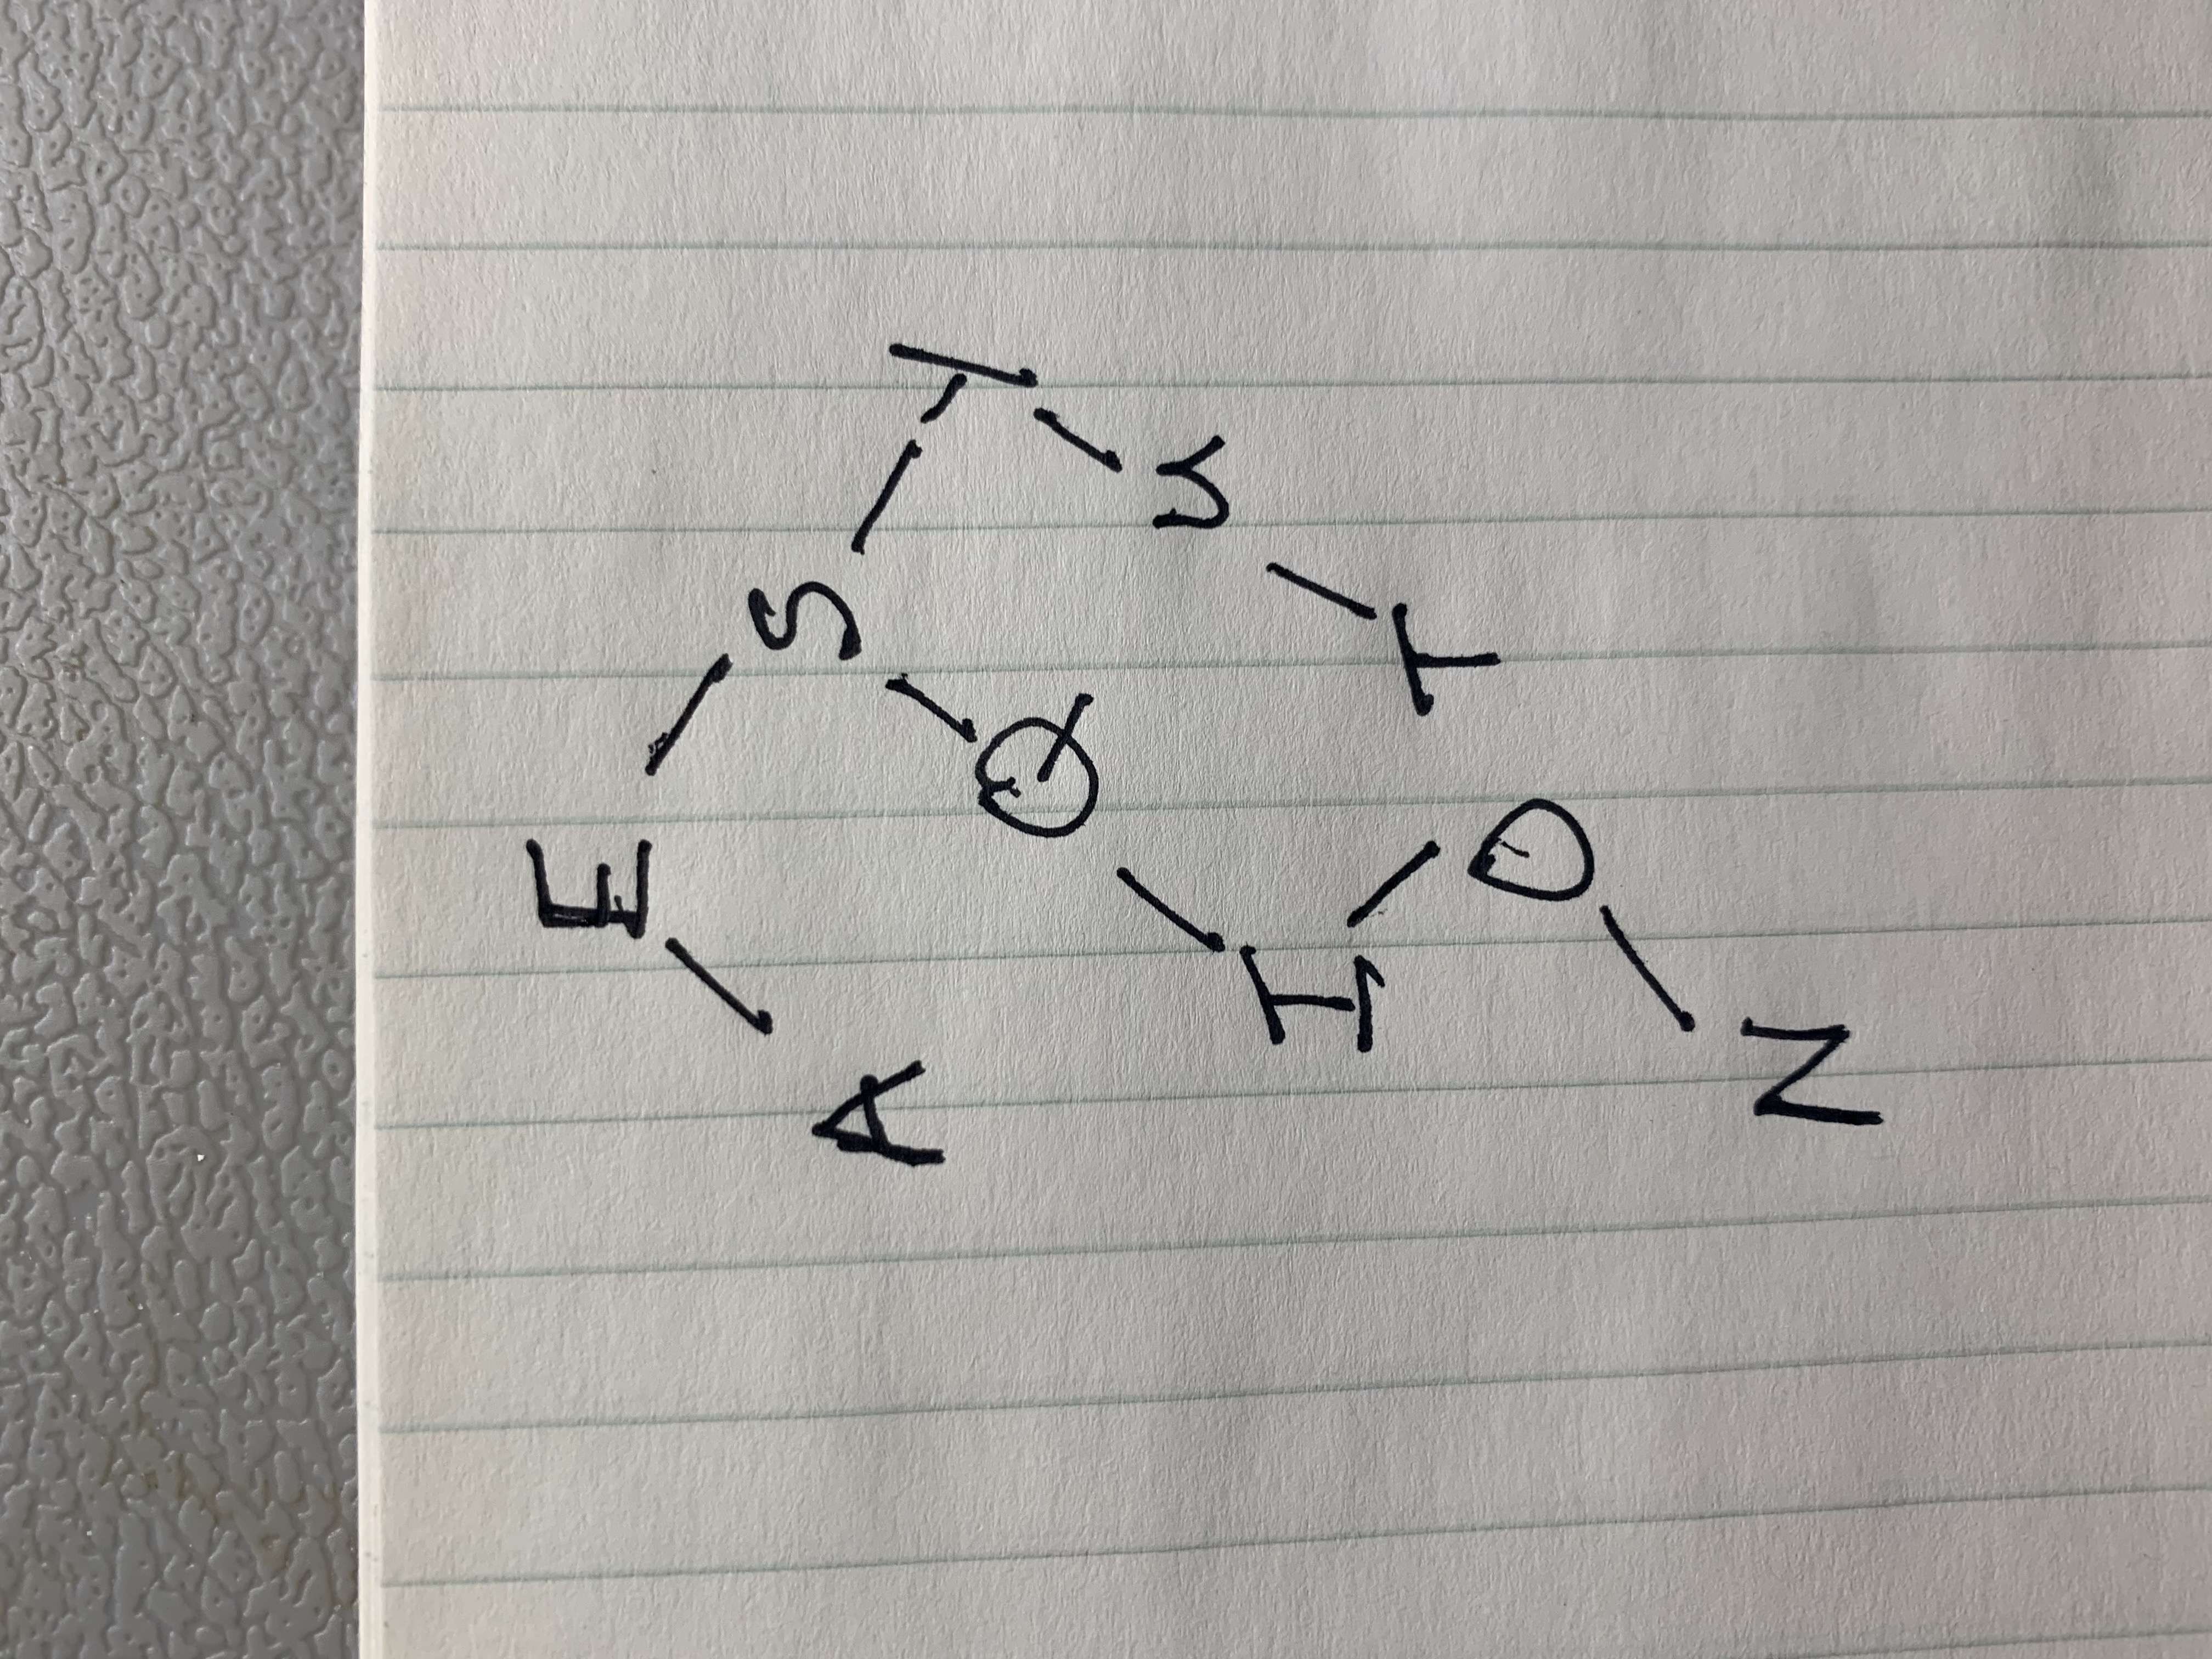 E
A S
Q Y
I U
O T
N